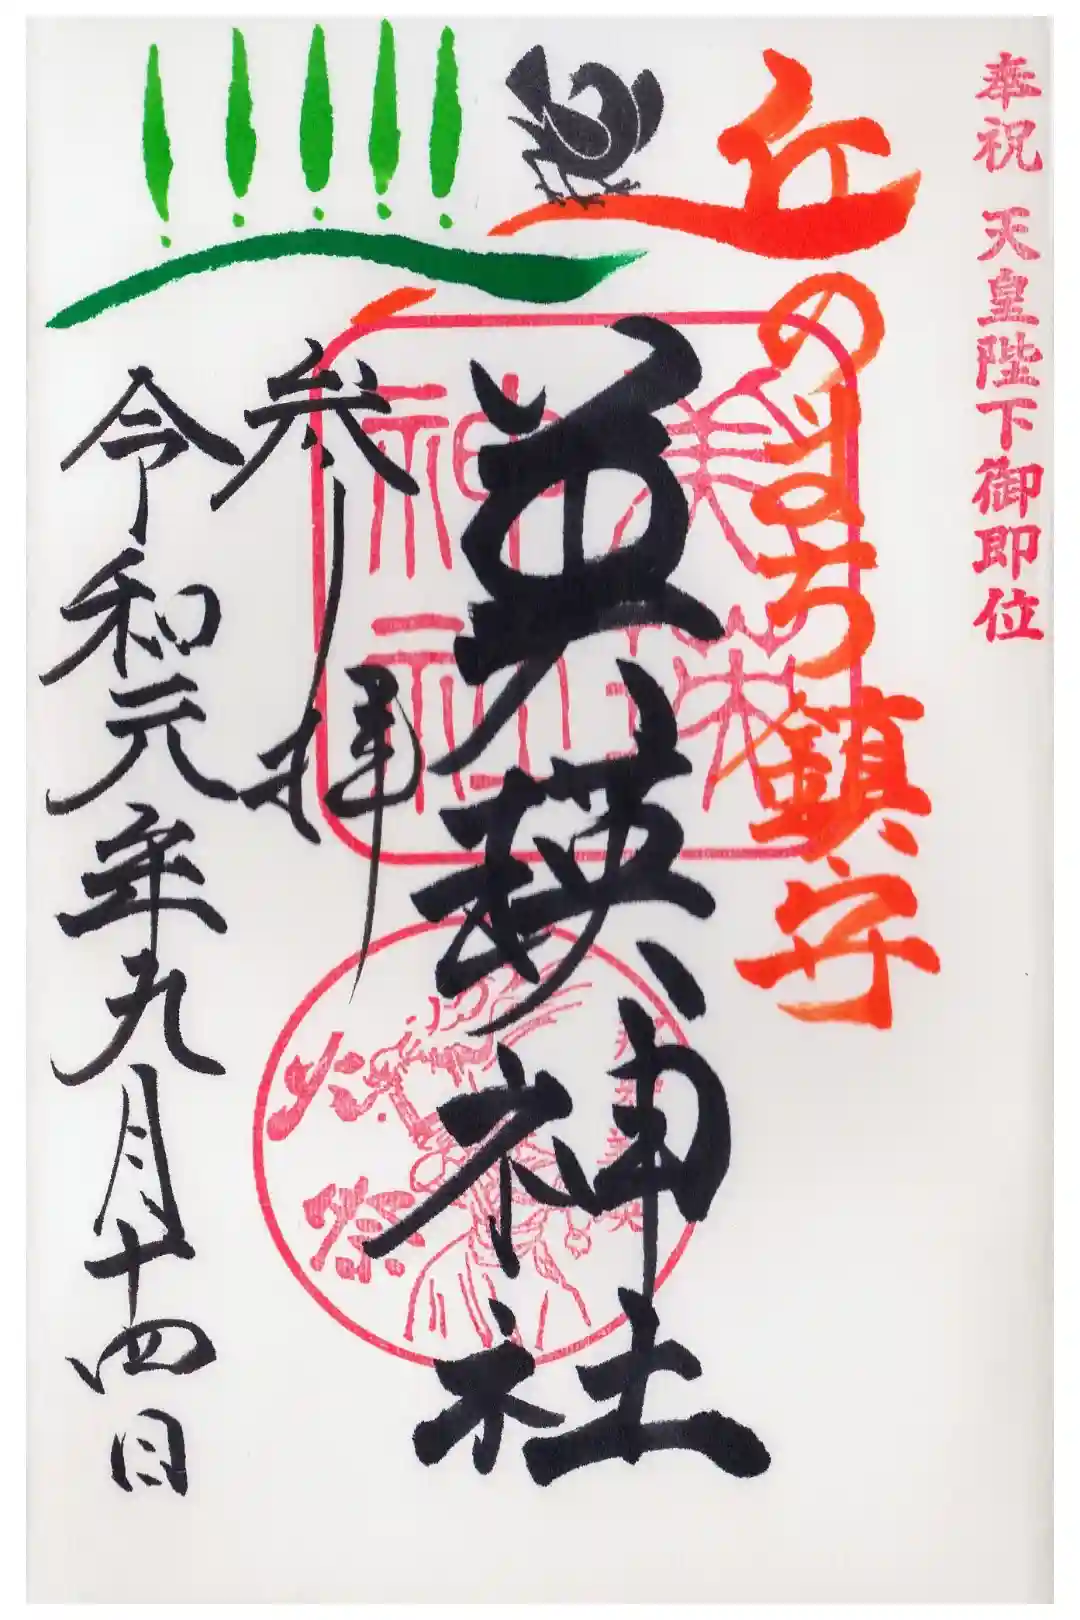 奉祝 天皇陛下御即位
丘のまち鎮守
美瑛神社
美瑛神社
火祭
参拝
令和元年九月十四日